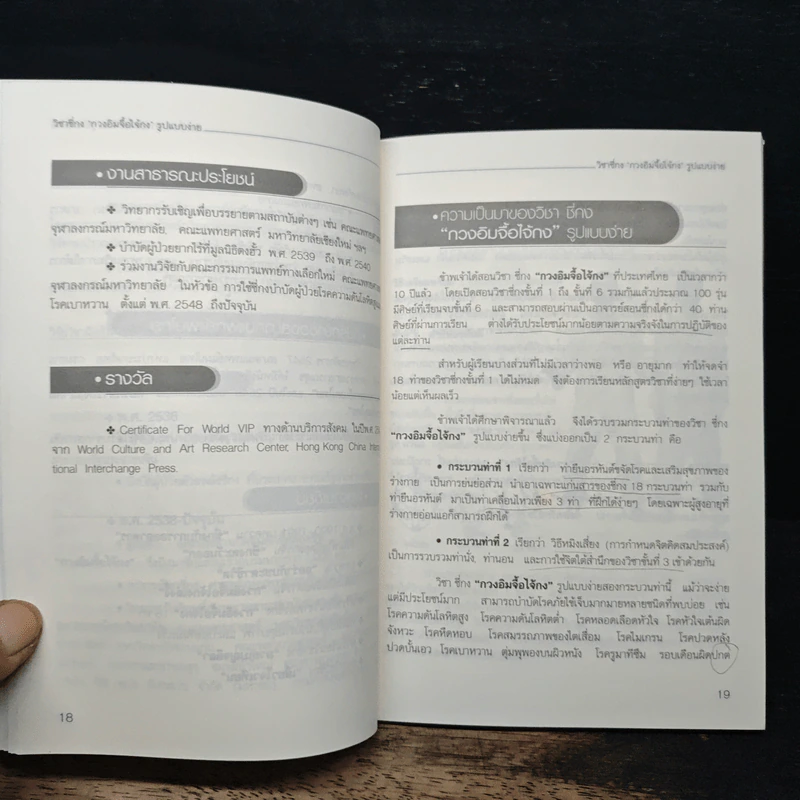 วิชาชี่กง "กวงอิมจื้อไจ้กง" รูปแบบง่าย
• งานสาธารณะประโยชน์
✤ วิทยากรรับเชิญเพื่อบรรยายตามสถาบันต่างๆ เช่น คณะแพทยศาสตร์
จุฬาลงกรณ์มหาวิทยาลัย คณะแพทยศาสตร์ มหาวิทยาลัยเชียงใหม่ ฯลฯ
✤ บำบัดผู้ป่วยยากไร้ที่มูลนิธิตงฮั้ว พ.ศ. 2539 ถึง พ.ศ. 2540
✤ ร่วมงานวิจัยกับคณะกรรมการแพทย์ทางเลือกใหม่ คณะแพทยศาสตร์
จุฬาลงกรณ์มหาวิทยาลัย ในหัวข้อ การใช้ชี่กงบำบัดผู้ป่วยโรคความดันโลหิตสูงและ
โรคเบาหวาน ตั้งแต่ พ.ศ. 2548 ถึงปัจจุบัน
• รางวัล
✤ Certificate For World VIP ทางด้านบริการสังคม ในปีพ.ศ.
จาก World Culture and Art Research Center, Hong Kong China Interna-
tional Interchange Press.
18
วิชาชี่กง "กวงอิมจื้อไจ้กง" รูปแบบง่าย
• ความเป็นมาของวิชา ชี่กง
"กวงอิมจื้อไจ้กง" รูปแบบง่าย
ข้าพเจ้าได้สอนวิชา ชี่กง "กวงอิมจื้อไจ้กง" ที่ประเทศไทย เป็นเวลากว่า
10 ปีแล้ว โดยเปิดสอนวิชาชี่กงชั้นที่ 1 ถึง ชั้นที่ 6 รวมกันแล้วประมาณ 100 รุ่น
มีศิษย์ที่เรียนจบชั้นที่ 6 และสามารถสอบผ่านเป็นอาจารย์สอนชี่กงได้กว่า 40 ท่าน
ศิษย์ที่ผ่านการเรียน ต่างได้รับประโยชน์มากน้อยตามความจริงจังในการปฏิบัติของ
แต่ละท่าน
สำหรับผู้เรียนบางส่วนที่ไม่มีเวลาว่างพอ หรือ อายุมาก ทำให้จดจำ
18 ท่าของวิชาชี่กงชั้นที่ 1 ได้ไม่หมด จึงต้องการเรียนหลักสูตรวิชาที่ง่ายๆ ใช้เวลา
น้อยแต่เห็นผลเร็ว
ข้าพเจ้าได้ศึกษาพิจารณาแล้ว จึงได้รวบรวมกระบวนท่าของวิชา ชี่กง
"กวงอิมจื้อไจ้กง" รูปแบบง่ายขึ้น ซึ่งแบ่งออกเป็น 2 กระบวนท่า คือ
• กระบวนท่าที่ 1 เรียกว่า ท่ายืนอรหันต์ขจัดโรคและเสริมสุขภาพของ
ร่างกาย เป็นการย่นย่อส่วน นำเอาเฉพาะแก่นสารของชี่กง 18 กระบวนท่า รวมกับ
ท่ายืนอรหันต์ มาเป็นท่าเคลื่อนไหวเพียง 3 ท่า ที่ฝึกได้ง่ายๆ โดยเฉพาะผู้สูงอายุที่
ร่างกายอ่อนแอก็สามารถฝึกได้
• กระบวนท่าที่ 2 เรียกว่า วิธีหมิงเสี่ยง (การกำหนดจิตคิดสมประสงค์)
เป็นการรวบรวมท่านั่ง ท่านอน และการใช้จิตใต้สำนึกของวิชาชั้นที่ 3 เข้าด้วยกัน
วิชา ชี่กง "กวงอิมจื้อไจ้กง" รูปแบบง่ายสองกระบวนท่านี้ แม้ว่าจะง่าย
แต่มีประโยชน์มาก สามารถบำบัดโรคภัยไข้เจ็บมากมายหลายชนิดที่พบบ่อย เช่น
โรคความดันโลหิตสูง โรคความดันโลหิตต่ำ โรคหลอดเลือดหัวใจ โรคหัวใจเต้นผิด
จังหวะ โรคหืดหอบ โรคสมรรถภาพของไตเสื่อม โรคไมเกรน โรคปวดหลัง
ปวดบั้นเอว โรคเบาหวาน ตุ่มพุพองบนผิวหนัง โรครูมาทีซึม รอบเดือนผิดปกติ
19